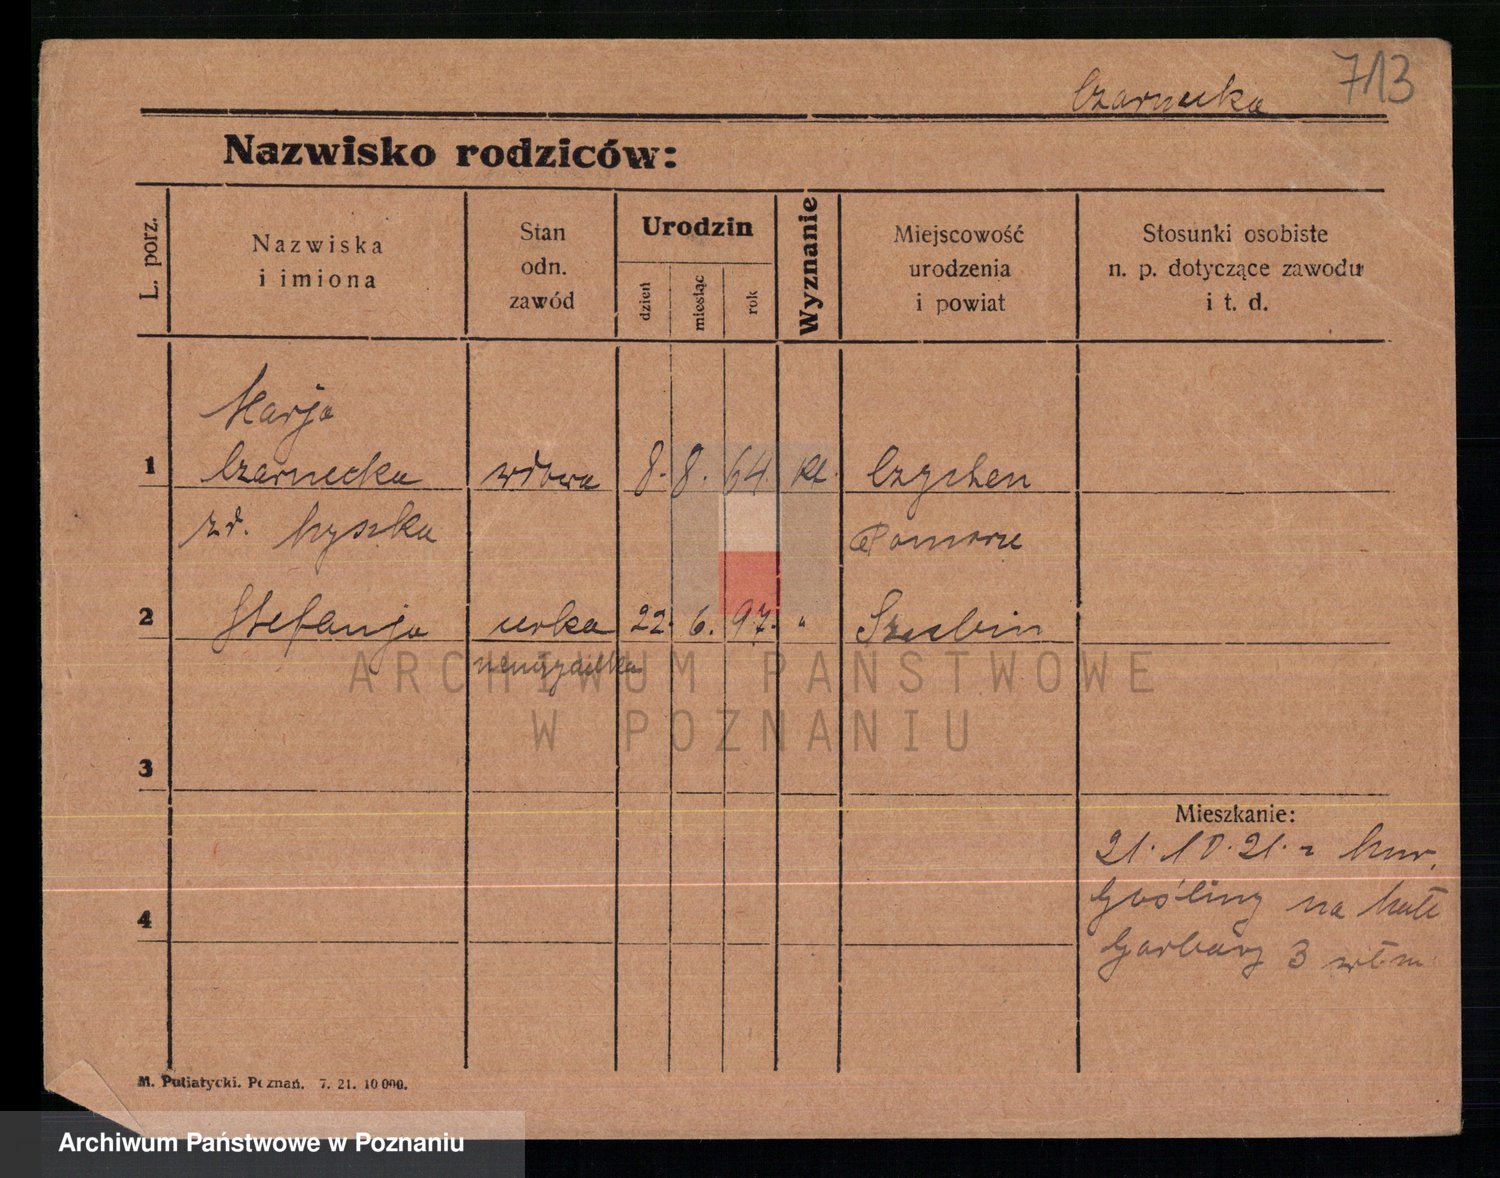 713
Czarnecka
Nazwisko rodziców:
L. porz.
Nazwiska
i imiona
Stan
odn.
zawód
Urodzin
dzień
miesiąc
rok
Wyznanie
Miejscowość
urodzenia
i powiat
Stosunki osobiste
n. p. dotyczące zawodu
i t. d.
Marja
1 Czarnecka wdowa 8. 8. 64. kt. Czychen
zd. Pomorze
2 Stefanja curka 22. 6. 97. " Szubin
ARCHIWUM PAŃSTWOWE
W POZNANIU
3
Mieszkanie:
21. 10. 21. z
Gośliny na
4
Garbary 3
M. Putiatycki. Poznań. 7. 21. 10 000.
Archiwum Państwowe w Poznaniu